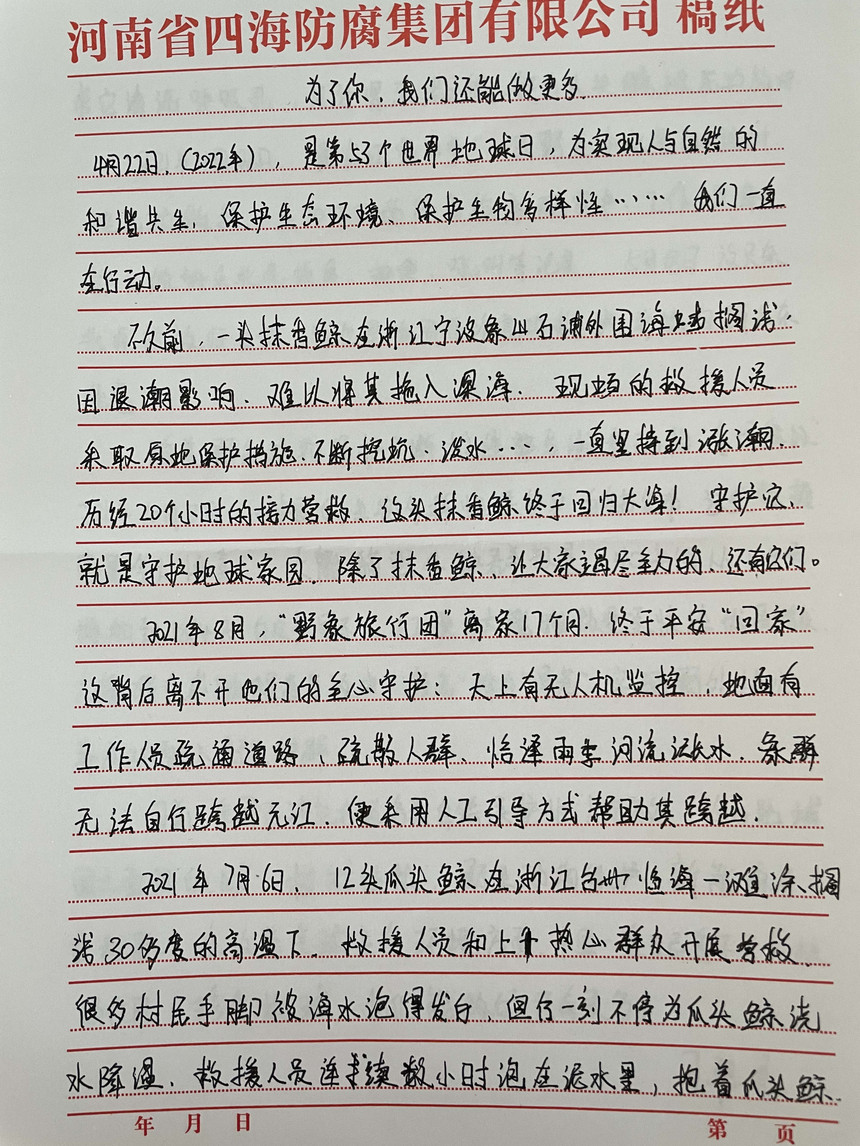 河南省四海防腐集团有限公司 稿纸
为了你，我们还能做更多.
4月22日.（2022年），是第53个世界地球日，为实现人与自然的
和谐共生，保护生态环境、保护生物多样性…… 我们一直
在行动。
不久前，一头抹香鲸在浙江宁波象山石浦外围海域搁浅.
因退潮影响.难以将其拖入深海. 现场的救援人员
采取原地保护措施.不断挖坑.泼水…，一直坚持到涨潮.
历经20个小时的接力营救，这头抹香鲸终于回归大海！守护它、
就是守护地球家园. 除了抹香鲸、让大家竭尽全力的、还有它们。
2021年8月，“野象旅行团”离家17个月.终于平安“回家”
这背后离不开他们的全心守护：天上有无人机监控，地面有
工作人员疏通道路、疏散人群、恰逢雨季河流涨水.象群
无法自行跨越元江.便采用人工引导方式帮助其跨越.
2021年7月6日，12头瓜头鲸在浙江台州临海一滩涂搁
浅30多度的高温下.救援人员和上千热心群众开展营救.
很多村民手脚被海水泡得发白，但仍一刻不停为瓜头鲸浇
水降温.救援人员连续数小时泡在泥水里，抱着瓜头鲸.
年 月 日 第 页